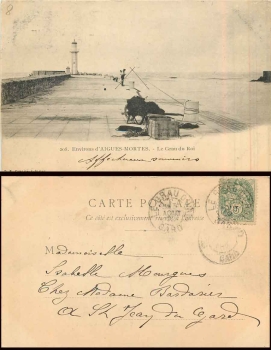 8
Environs d'AIGUES-MORTES. - Le Grau du Roi
Affectueux souvenirs
CARTE POSTALE
Ce côté est exclusivement réservé à l'adresse
GARD
GARD
Mademoiselle
Isabelle Margues
Chez Madame Bardasier
à St Jean du Gard